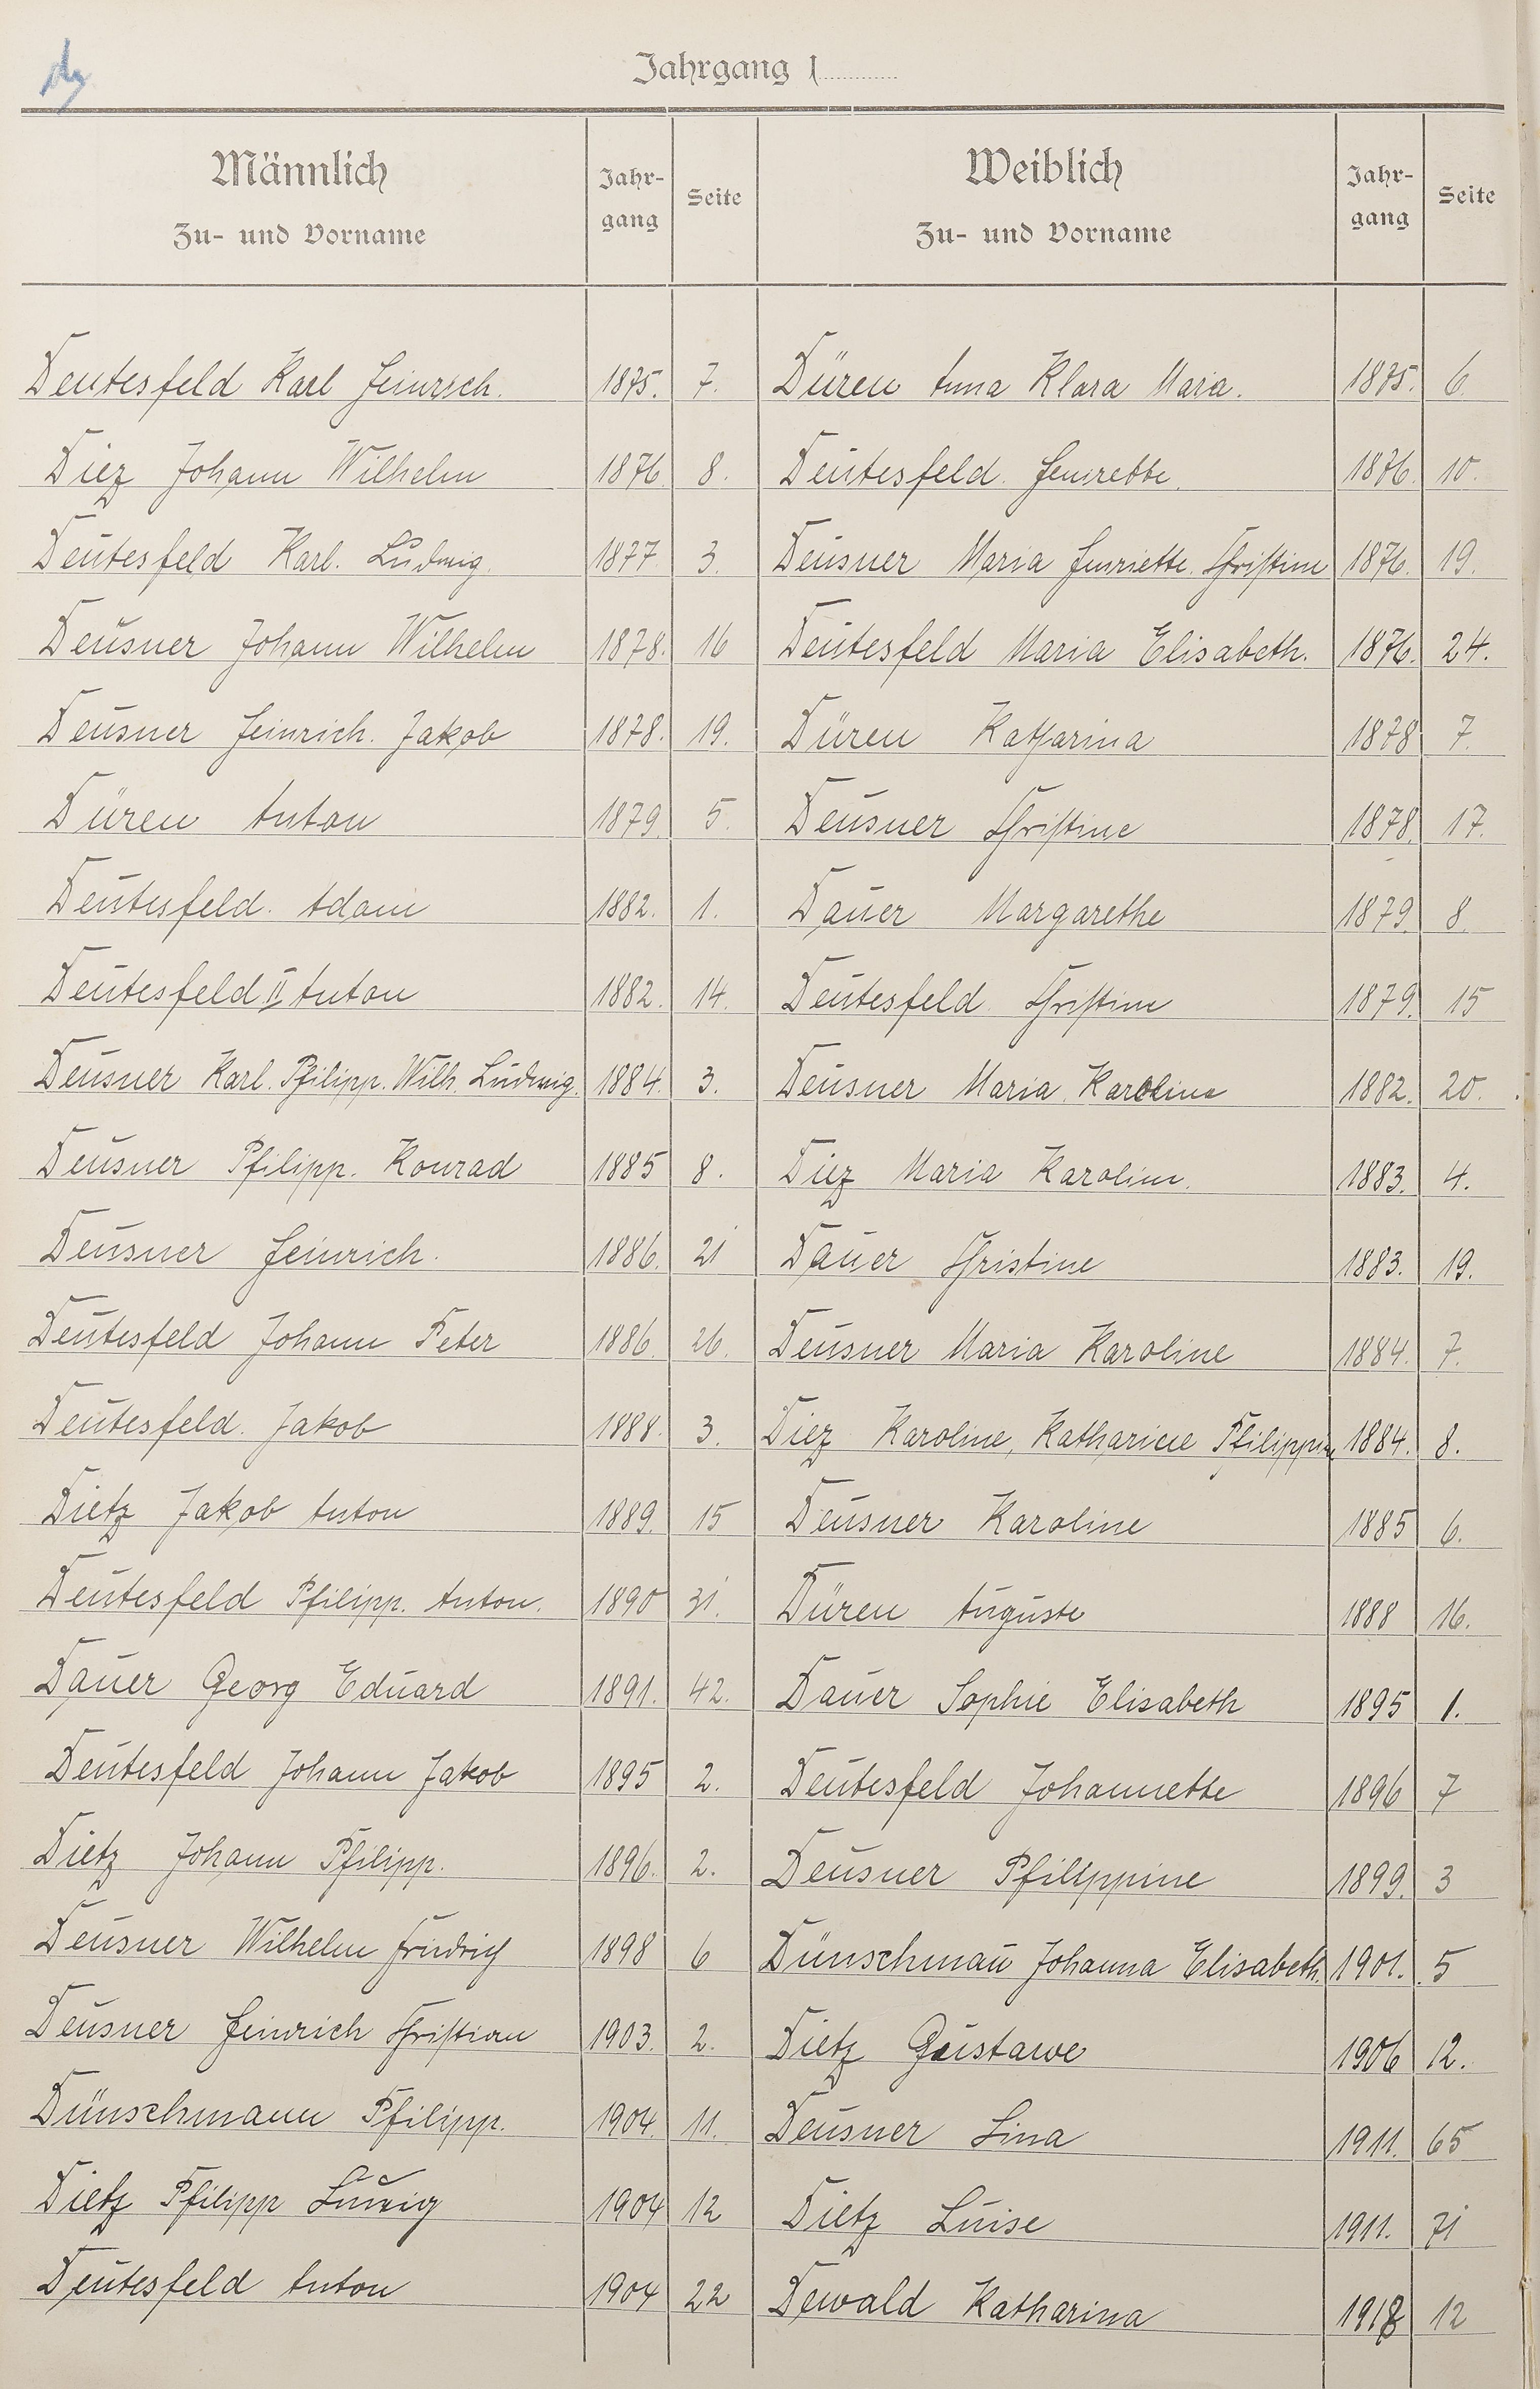 Jahrgang 1
Männlich
Zu- und Vorname
Jahr-
gang
Seite
Weiblich
Zu- und Vorname
Jahr-
gang
Seite
Deutesfeld Karl Heinrich. 1875. 7. Düren Anna Klara Maria. 1875. 6.
Diez Johann Wilhelm 1876 8. Deutesfeld. Henrette. 1876. 10.
Deutesfeld Karl. Ludwig. 1877 3. Deusner Maria Henriette. Christine 1876. 19.
Deusner Johann Wilhelm 1878. 16 Deutesfeld Maria Elisabeth. 1876. 24.
Deusner Heinrich. Jakob 1878. 19. Düren Katharina 1878 7.
Düren Anton 1879. 5. Deusner Christine 1878. 17.
Deutesfeld. Adam 1882. 1. Dauer Margarethe 1879. 8.
Deutesfeld II Anton 1882. 14. Deutesfeld. Christine 1879. 15
Deusner Karl. Philipp. Wilh. Ludwig. 1884. 3. Deusner Maria Karoline 1882. 20.
Deusner Philipp. Konrad 1885 8. Diez Maria Karoline. 1883. 4.
Deusner Heinrich. 1886. 21 Dauer Christine 1883. 19.
Deutesfeld Johann Peter 1886. 26. Deusner Maria Karoline 1884. 7.
Deutesfeld. Jakob 1888. 3. Diez Karoline, Katharine Philippine 1884. 8.
Dietz Jakob Anton 1889. 15 Deusner Karoline 1885 6.
Deutesfeld Philipp. Anton. 1890 31. Düren Auguste 1888 16.
Dauer Georg Eduard 1891. 42. Dauer Sophie Elisabeth 1895 1.
Deutesfeld Johann Jakob 1895 2. Deutesfeld Johannette 1896 7
Dietz Johann Philipp. 1896. 2. Deusner Philippine 1899. 3
Deusner Wilhelm Friedrich 1898 6 Dünschmañ Johanna Elisabeth. 1901. 5
Deusner Heinrich Christian 1903. 2. Dietz Gustawe 1906 12.
Dünschmann Philipp. 1904. 11. Deusner Lina 1911. 65
Dietz Philipp Ludwig 1904 12 Dietz Luise 1911. 71
Deutesfeld Anton 1904 22 Dewald Katharina 1918 12